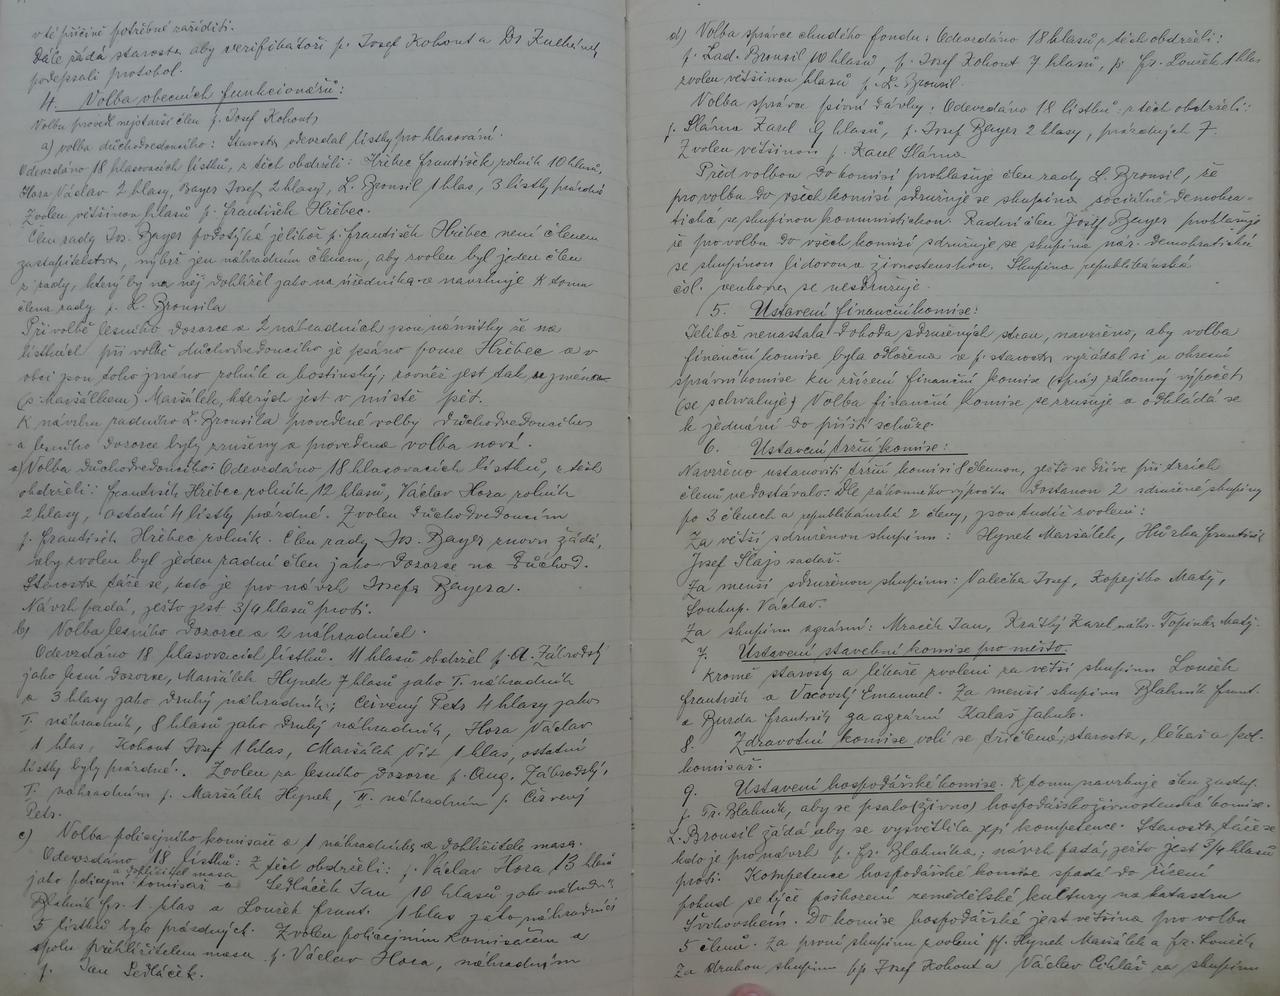 v té příčině potřebné zaříditi.
Dále žádá starosta aby verifikátoři p. Josef Kohout a Dr
podepsali protokol.
4. Volba obecních funkcionářů:
Volbu provedl nejstarší člen p. Josef Kohout,
a) volba důchodvedoucího: Starosta odevzdal lístky pro hlasování.
Odevzdáno 18 hlasovacích lístků, z těch obdrželi: Hřebec František rolník 10 hlasů,
Hora Václav 2 hlasy, Bayer Josef 2 hlasy, L. Brousil 1 hlas, 3 lístky prázdné
Zvolen většinou hlasů p. František Hřebec.
Člen rady Jos. Bayer podotýká jelikož p. František Hřebec není členem
zastupitelstva, nýbrž jen náhradním členem, aby zvolen byl jeden člen
z rady, který by na něj dohlížel jako na úředníka a navrhuje k tomu
člena rady p. L. Brousila
Při volbě lesního dozorce a 2 náhradních jsou námitky že na
lístkách při volbě důchodvedoucího je psáno pouze Hřebec a v
obci jsou toho jména rolník a hostinský, rovněž jest tak
(s Maršálkem) Maršálek, kterých jest v místě pět.
K návrhu radního L. Brousila provedené volby důchodvedoucího
a lesního dozorce byly zrušeny a provedena volba nová.
a) Volba důchodvedoucího: Odevzdáno 18 hlasovacích lístků, z těch
obdrželi: František Hřebec rolník 12 hlasů, Václav Hora rolník
2 hlasy, ostatní 4 lístky prázdné. Zvolen důchodvedoucím
p. František Hřebec rolník. Člen rady Jos. Bayer znovu žádá,
aby zvolen byl jeden radní člen jako dozorce na důchod.
Starosta táže se, kdo je pro návrh Josefa Bayera.
Návrh padá, ježto jest 3/4 hlasů proti.
b) Volba lesního dozorce a 2 náhradních.
Odevzdáno 18 hlasovacích lístků. 11 hlasů obdržel p. A. Zábrodský
jako lesní dozorce, Maršálek Hynek 7 hlasů jako I. náhradník
a 3 hlasy jako druhý náhradník; Červený Petr 4 hlasy jako
I. náhradník, 8 hlasů jako druhý náhradník, Hora Václav
1 hlas, Kohout Josef 1 hlas, Maršálek Vít 1 hlas, ostatní
lístky byly prázdné. Zvolen za lesního dozorce p. Aug. Zábrodský,
I. náhradním p. Maršálek Hynek, II. náhradním p. Červený
Petr.
c) Volba policejního komisaře a 1 náhradníka a dohlížitele masa.
Odevzdáno 18 lístků: Z těch obdrželi: p. Václav Hora 13 hlasů
a dohlížitel masa
jako policejní komisař a Sedláček Jan, 10 hlasů jako náhradní
Blahník Fr. 1 hlas a Louček Frant. 1 hlas jako náhradníci
5 lístků bylo prázdných. Zvolen policejním komisařem a
spolu prohlížitelem masa p. Václav Hora, náhradním
p. Jan Sedláček.
d) Volba správce chudého fondu. Odevzdáno 18 hlasů z těch obdrželi:
p. Lad. Brousil 10 hlasů, p. Josef Kohout 7 hlasů, p. Fr. Louček 1 hlas
zvolen většinou hlasů p. L. Brousil.
Volba správce pivní dávky. Odevzdáno 18 lístků z těch obdrželi:
p. Sláma Karel 9 hlasů, p. Josef Bayer 2 hlasy, prázdných 7.
Zvolen většinou p. Karel Sláma
Před volbou do komisí prohlašuje člen rady L. Brousil, že
pro volbu do všech komisí sdružuje se skupina sociálně demokra-
tická se skupinou komunistickou. Radní člen Josef Bayer prohlašuje
že pro volbu do všech komisí sdružuje se skupina nár. demokratická
se skupinou lidovou a živnostenskou. Skupina republikánská
čsl. venkova se nesdružuje.
5. Ustavení finanční komise:
Jelikož nenastala dohoda sdružených stran, navrženo, aby volba
finanční komise byla odložena a p. starosta vyžádal si u okresní
správní komise ku zřízení finanční komise (správ) zákonný výpočet
(se schvaluje) Volba finanční komise se zrušuje a odkládá se
k jednání do příští schůze.
6. Ustavení tržní komise:
Navrženo ustanoviti tržní komisi 8 člennou, ježto se dříve při trzích
členů nedostávalo. Dle zákonného výpočtu dostanou 2 sdružené skupiny
po 3 členech a republikánská 2 členy, jsou tudíž zvoleni:
Za větší sdruženou skupinu: Hynek Maršálek, Hůrka František
Josef Šlajs sadař.
Za menší sdruženou skupinu: Valečka Josef, Kopejtko Matěj,
Soukup Václav.
Za skupinu agrární: Mraček Jan, Krátký Karel náhr. Topinka Matěj.
7. Ustavení stavební komise pro město.
Kromě starosty a lékaře zvoleni za větší skupinu Louček
František a Vacovský Emanuel. Za menší skupinu Blahník Frant.
a Burda František za agrární Kalaš Jakub.
8. Zdravotní komise volí se tříčlenná, starosta, lékař a pol.
komisař.
9. Ustavení hospodářské komise. K tomu navrhuje člen zastup.
p. Fr. Blahník, aby se psalo (živno) hospodářskoživnostenská komise.
L. Brousil žádá aby se vysvětlila její kompetence. Starosta táže se
kdo je pro návrh p. Fr. Blahníka; návrh padá, ježto jest 3/4 hlasů
proti. Kompetence hospodářské komise spadá do řízení
pokud se týče poškození zemědělské kultury na katastru
Do komise hospodářské jest většina pro volbu
5 členů. Za první skupinu zvoleni pp. Hynek Maršálek a Fr. Louček
Za druhou skupinu pp Josef Kohout a Václav Cihlář za skupinu